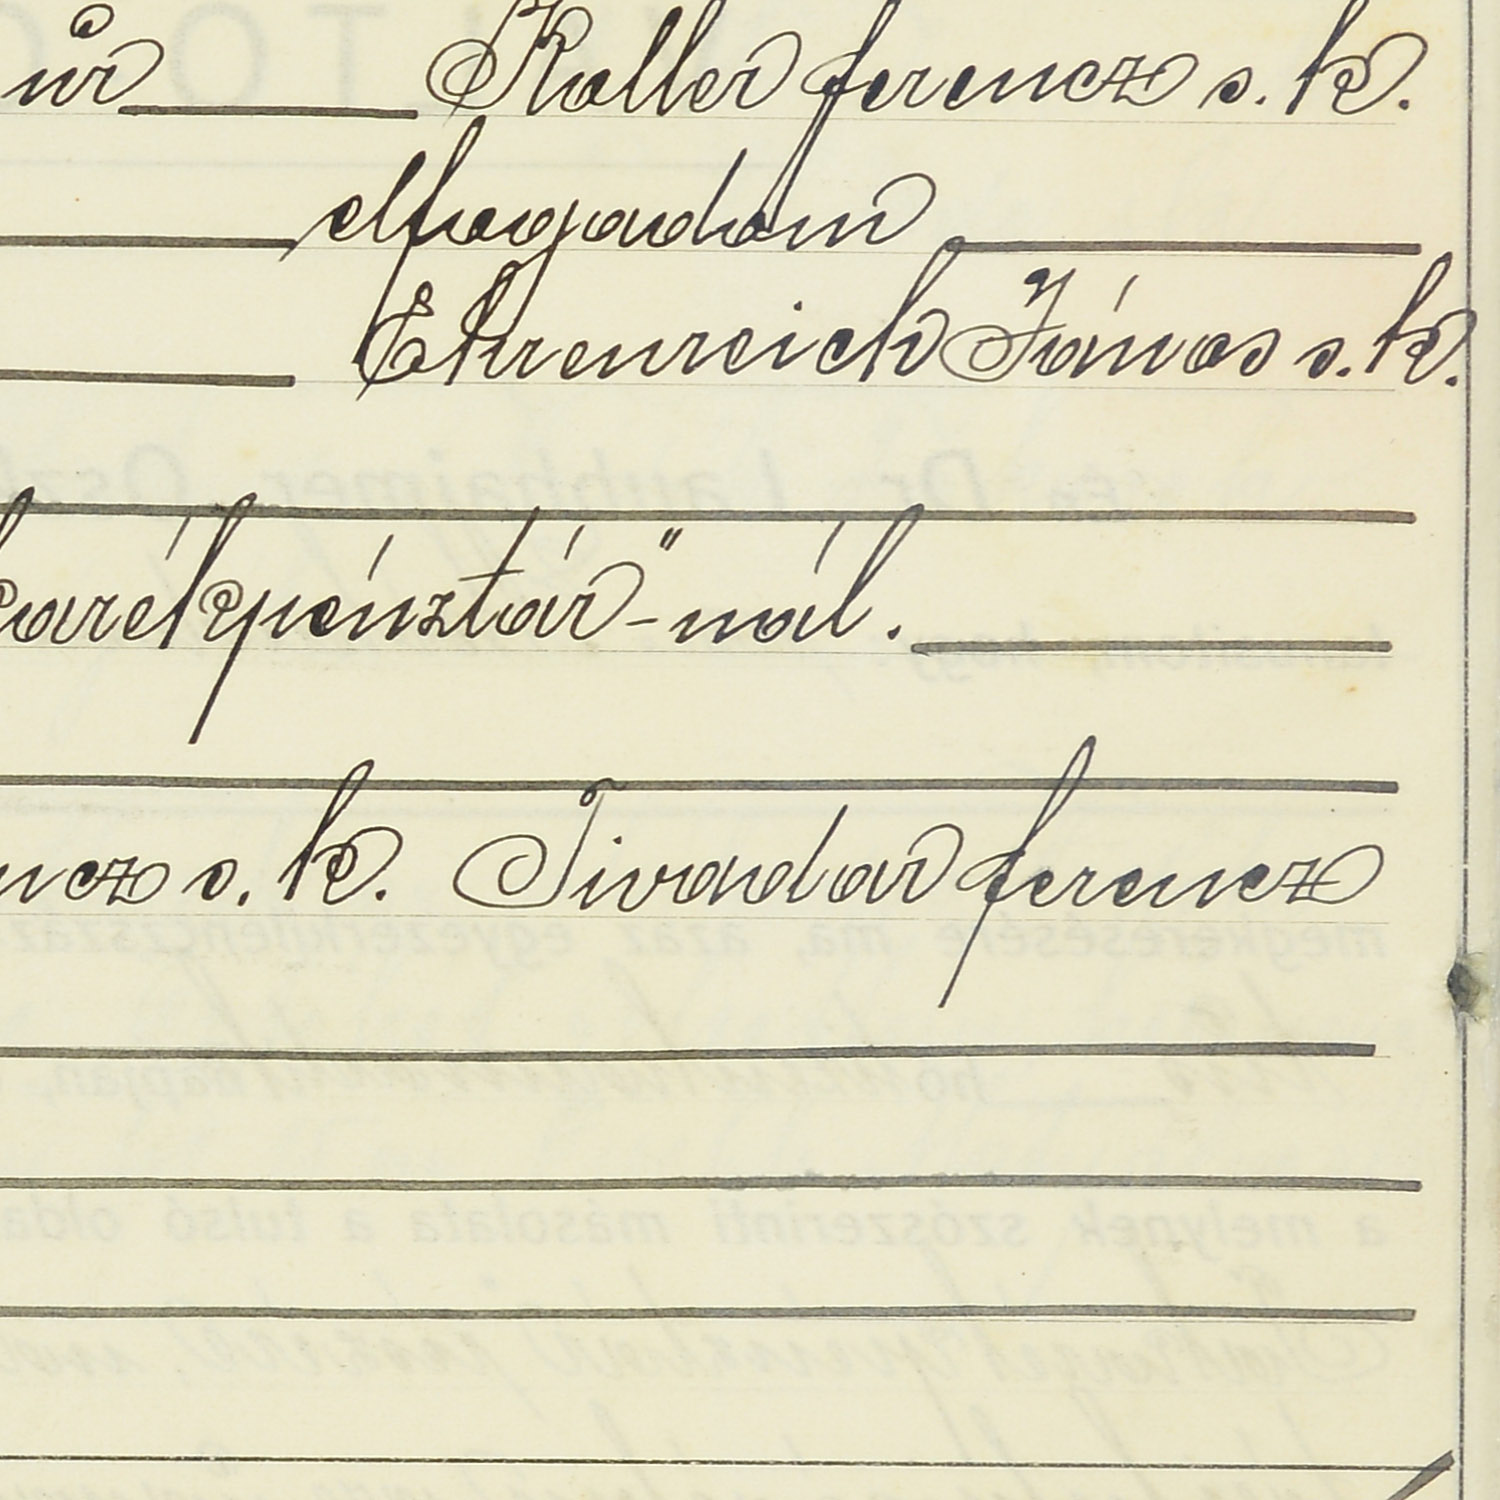 úr Koller ferencz s. k.
elfogadom
Ehrenreich János s. k.
karékpénztár"-nál.
ncz s. k. Tivadar ferencz